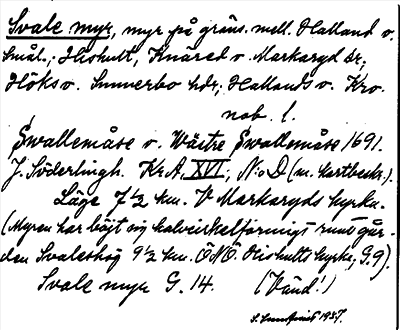 Svale myr, myr på gräns. mell. Halland o.
Smål.; Hishult, Knäred o. Markaryd sr;
Höks o. Sunnerbo hdr; Hallands o. Kro.
nob. l.
Swallemåse o. Wästre Swallemåse 1691.
J. Söderlingh. KrA, XVI, N:o D (m. kartbeskr.).
Läge 7 1/2 km. V Markaryds kyrka.
(Myren har böjt sig halvcirkelformigt runt går-
den Svaleshög 9 1/2 km. ÖNÖ Hishults kyrka, G.9).
Svale myr G. 14. (Vänd!)
S. Sundqvist 1937.